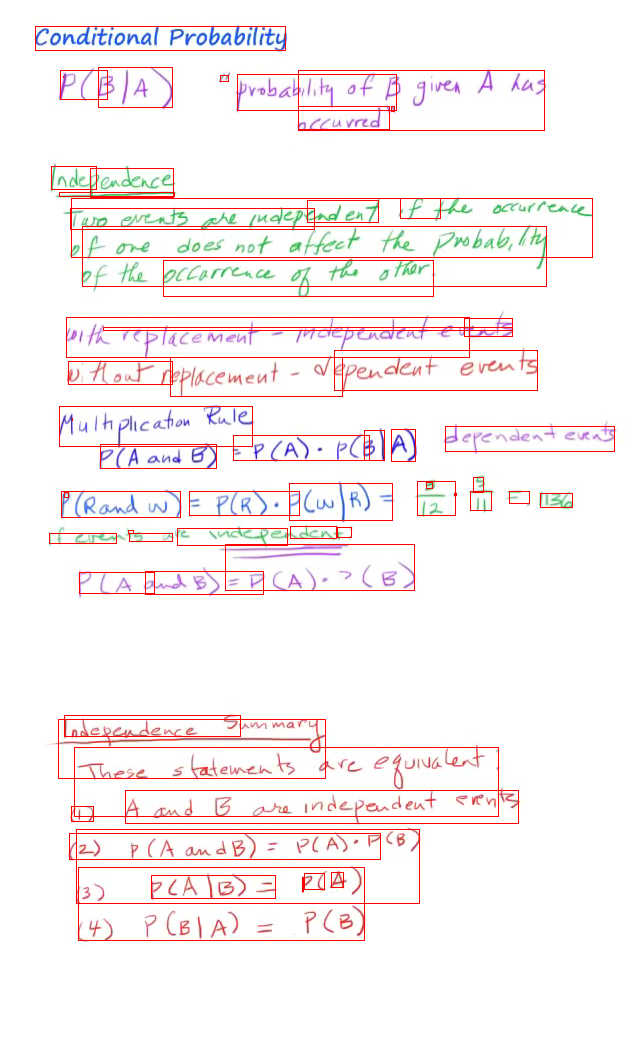 Conditional Probability
P(B|A) "probability of B given A has
occurred"
Independence
Two events are independent if the occurrence
of one does not affect the probability
of the occurrence of the other.
with replacement - independent events
without replacement - dependent events
Multiplication Rule
P(A and B) = P(A) · P(B|A) dependent events
P(R and W) = P(R) · P(W|R) = 3/12 · 5/11 = .136
if events are independent
P(A and B) = P(A) · P(B)
Independence Summary
These statements are equivalent:
(1) A and B are independent events
(2) P(A and B) = P(A) · P(B)
(3) P(A|B) = P(A)
(4) P(B|A) = P(B)